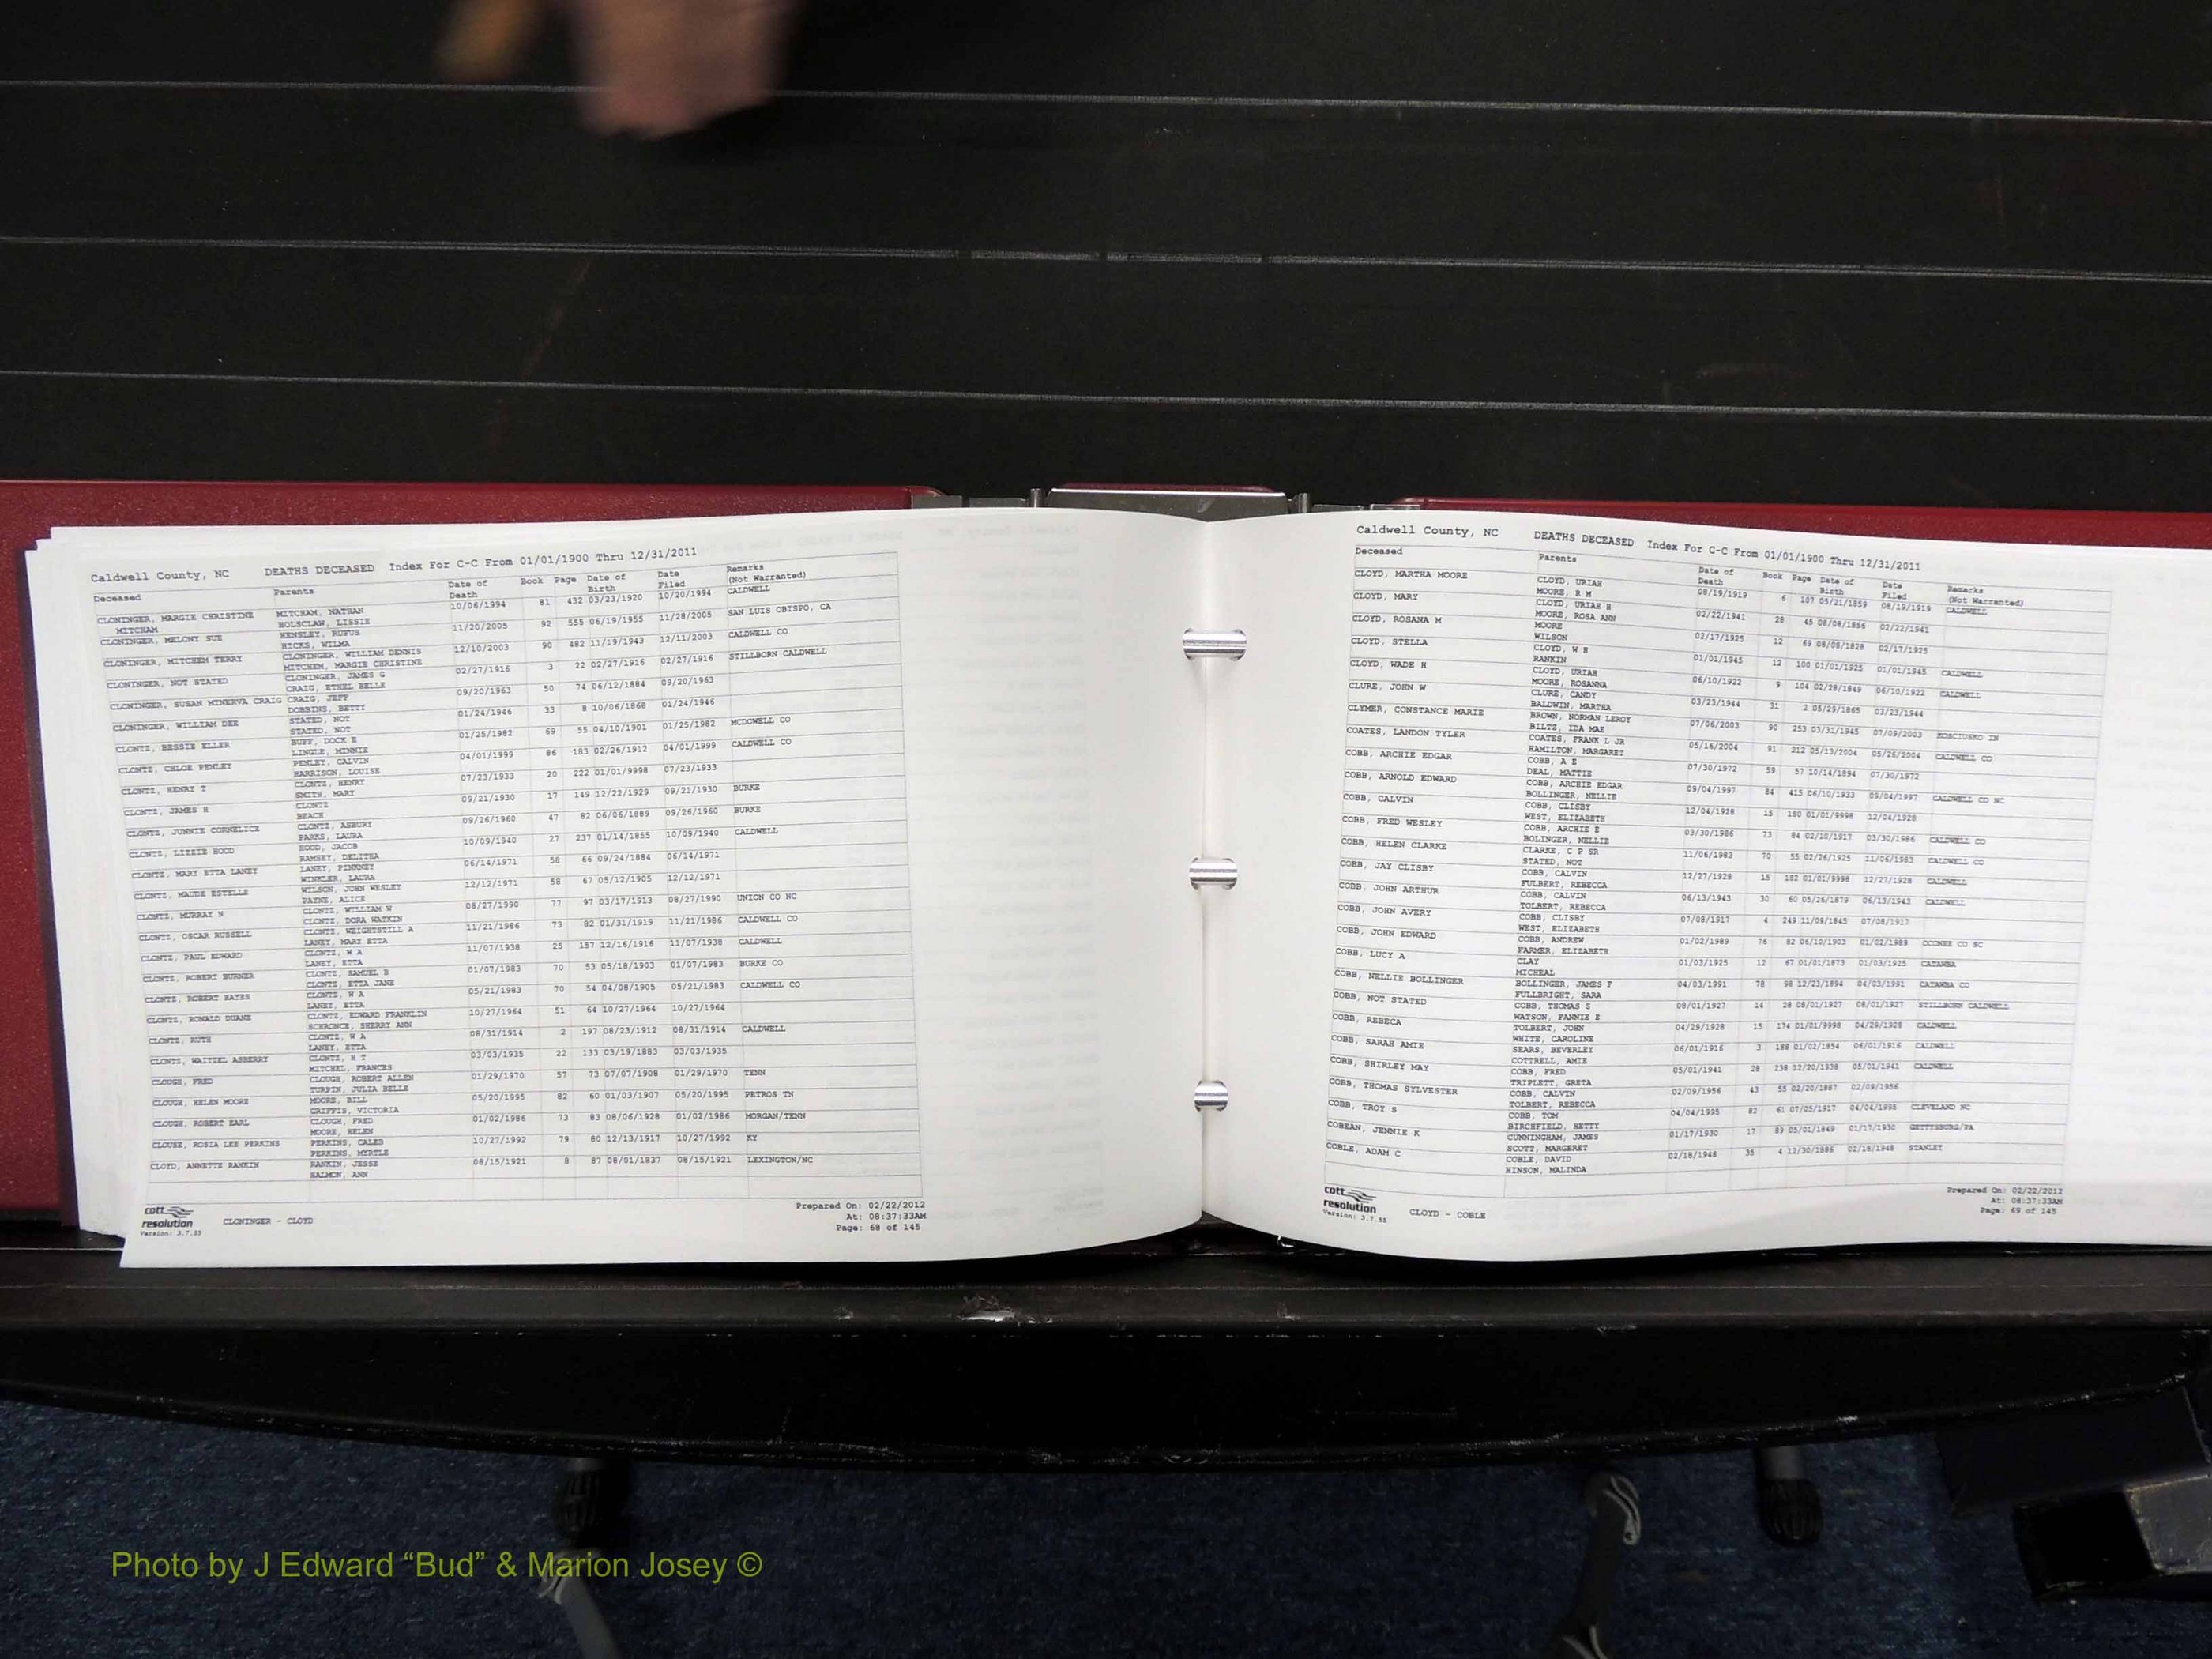 Caldwell County, NC DEATHS DECEASED Index For C-C From 01/01/1900 Thru 12/31/2011
Deceased Parents Date of Death Book Page Date of Birth Date Filed Remarks (Not Warranted)
CLONINGER, MARGIE CHRISTINE MITCHAM, NATHAN 10/06/1994 81 432 03/23/1920 10/20/1994 CALDWELL
MITCHAM HOLSCLAW, LISSIE
CLONINGER, MELONY SUE HENSLEY, RUFUS 11/20/2005 92 555 06/19/1955 11/28/2005 SAN LUIS OBISPO, CA
HICKS, WILMA
CLONINGER, MITCHEM TERRY CLONINGER, WILLIAM DENNIS 12/10/2003 90 482 11/19/1943 12/11/2003 CALDWELL CO
MITCHEM, MARGIE CHRISTINE
CLONINGER, NOT STATED CLONINGER, JAMES G 02/27/1916 3 22 02/27/1916 02/27/1916 STILLBORN CALDWELL
CRAIG, ETHEL BELLE
CLONINGER, SUSAN MINERVA CRAIG CRAIG, JEFF 09/20/1963 50 74 06/12/1884 09/20/1963
DOBBINS, BETTY
CLONINGER, WILLIAM DEE STATED, NOT 01/24/1946 33 8 10/06/1868 01/24/1946
STATED, NOT
CLONTZ, BESSIE ELLER BUFF, DOCK E 01/25/1982 69 55 04/10/1901 01/25/1982 MCDOWELL CO
LINGLE, MINNIE
CLONTZ, CHLOE PENLEY PENLEY, CALVIN 04/01/1999 86 183 02/26/1912 04/01/1999 CALDWELL CO
HARRISON, LOUISE
CLONTZ, HENRY T CLONTZ, HENRY 07/23/1933 20 222 01/01/9998 07/23/1933
SMITH, MARY
CLONTZ, JAMES H CLONTZ 09/21/1930 17 149 12/22/1929 09/21/1930 BURKE
BEACH
CLONTZ, JUNNIE CORNELICE CLONTZ, ASBURY 09/26/1960 47 82 06/06/1889 09/26/1960 BURKE
PARKS, LAURA
CLONTZ, LIZZIE HOOD HOOD, JACOB 10/09/1940 27 237 01/14/1855 10/09/1940 CALDWELL
RAMSEY, DELITHA
CLONTZ, MARY ETTA LANEY LANEY, PINKNEY 06/14/1971 58 66 09/24/1884 06/14/1971
WINKLER, LAURA
CLONTZ, MAUDE ESTELLE WILSON, JOHN WESLEY 12/12/1971 58 67 05/12/1905 12/12/1971
PAYNE, ALICE
CLONTZ, MURRAY N CLONTZ, WILLIAM W 08/27/1990 77 97 03/17/1913 08/27/1990 UNION CO NC
CLONTZ, DORA WATKIN
CLONTZ, OSCAR RUSSELL CLONTZ, WEIGHTSTILL A 11/21/1986 73 82 01/31/1919 11/21/1986 CALDWELL CO
LANEY, MARY ETTA
CLONTZ, PAUL EDWARD CLONTZ, W A 11/07/1938 25 157 12/16/1916 11/07/1938 CALDWELL
LANEY, ETTA
CLONTZ, ROBERT BURNER CLONTZ, SAMUEL B 01/07/1983 70 53 05/18/1903 01/07/1983 BURKE CO
CLONTZ, ETTA JANE
CLONTZ, ROBERT HAYES CLONTZ, W A 05/21/1983 70 54 04/08/1905 05/21/1983 CALDWELL CO
LANEY, ETTA
CLONTZ, RONALD DUANE CLONTZ, EDWARD FRANKLIN 10/27/1964 51 64 10/27/1964 10/27/1964
SCHRONCE, SHERRY ANN
CLONTZ, RUTH CLONTZ, W A 08/31/1914 2 197 08/23/1912 08/31/1914 CALDWELL
LANEY, ETTA
CLONTZ, WAITZEL ASBERRY CLONTZ, H T 03/03/1935 22 133 03/19/1883 03/03/1935
MITCHEL, FRANCES
CLOUGH, FRED CLOUGH, ROBERT ALLEN 01/29/1970 57 73 07/07/1908 01/29/1970 TENN
TURPIN, JULIA BELLE
CLOUGH, HELEN MOORE MOORE, BILL 05/20/1995 82 60 01/03/1907 05/20/1995 PETROS TN
GRIFFIS, VICTORIA
CLOUGH, ROBERT EARL CLOUGH, FRED 01/02/1986 73 83 08/06/1928 01/02/1986 MORGAN/TENN
MOORE, HELEN
CLOUSE, ROSIA LEE PERKINS PERKINS, CALEB 10/27/1992 79 80 12/13/1917 10/27/1992 KY
PERKINS, MYRTLE
CLOYD, ANNETTE RANKIN RANKIN, JESSE 08/15/1921 8 87 08/01/1837 08/15/1921 LEXINGTON/NC
SALMON, ANN
cott
resolution
Version: 3.7.55
CLONINGER - CLOYD
Prepared On: 02/22/2012
At: 08:37:33AM
Page: 68 of 145
Caldwell County, NC DEATHS DECEASED Index For C-C From 01/01/1900 Thru 12/31/2011
Deceased Parents Date of Death Book Page Date of Birth Date Filed Remarks (Not Warranted)
CLOYD, MARTHA MOORE CLOYD, URIAH 08/19/1919 6 107 05/21/1859 08/19/1919 CALDWELL
MOORE, R M
CLOYD, MARY CLOYD, URIAH H 02/22/1941 28 45 08/08/1856 02/22/1941
MOORE, ROSA ANN
CLOYD, ROSANA M MOORE 02/17/1925 12 69 08/08/1828 02/17/1925
WILSON
CLOYD, STELLA CLOYD, W H 01/01/1945 12 100 01/01/1925 01/01/1945 CALDWELL
RANKIN
CLOYD, WADE H CLOYD, URIAH 06/10/1922 9 104 02/28/1849 06/10/1922 CALDWELL
MOORE, ROSANNA
CLURE, JOHN W CLURE, CANDY 03/23/1944 31 2 05/29/1865 03/23/1944
BALDWIN, MARTHA
CLYMER, CONSTANCE MARIE BROWN, NORMAN LEROY 07/06/2003 90 253 03/31/1945 07/09/2003 KOSCIUSKO IN
BILTZ, IDA MAE
COATES, LANDON TYLER COATES, FRANK L JR 05/16/2004 91 212 05/13/2004 05/26/2004 CALDWELL CO
HAMILTON, MARGARET
COBB, ARCHIE EDGAR COBB, A E 07/30/1972 59 57 10/14/1894 07/30/1972
DEAL, MATTIE
COBB, ARNOLD EDWARD COBB, ARCHIE EDGAR 09/04/1997 84 415 06/10/1933 09/04/1997 CALDWELL CO NC
BOLLINGER, NELLIE
COBB, CALVIN COBB, CLISBY 12/04/1928 15 180 01/01/9998 12/04/1928
WEST, ELIZABETH
COBB, FRED WESLEY COBB, ARCHIE E 03/30/1986 73 84 02/10/1917 03/30/1986 CALDWELL CO
BOLINGER, NELLIE
COBB, HELEN CLARKE CLARKE, C P SR 11/06/1983 70 55 02/26/1925 11/06/1983 CALDWELL CO
STATED, NOT
COBB, JAY CLISBY COBB, CALVIN 12/27/1928 15 182 01/01/9998 12/27/1928 CALDWELL
FULBERT, REBECCA
COBB, JOHN ARTHUR COBB, CALVIN 06/13/1943 30 60 05/26/1879 06/13/1943 CALDWELL
TOLBERT, REBECCA
COBB, JOHN AVERY COBB, CLISBY 07/08/1917 4 249 11/09/1845 07/08/1917
WEST, ELIZABETH
COBB, JOHN EDWARD COBB, ANDREW 01/02/1989 76 82 06/10/1903 01/02/1989 OCONEE CO SC
FARMER, ELIZABETH
COBB, LUCY A CLAY 01/03/1925 12 67 01/01/1873 01/03/1925 CATAWBA
MICHEAL
COBB, NELLIE BOLLINGER BOLLINGER, JAMES F 04/03/1991 78 98 12/23/1894 04/03/1991 CATAWBA CO
FULLBRIGHT, SARA
COBB, NOT STATED COBB, THOMAS S 08/01/1927 14 28 08/01/1927 08/01/1927 STILLBORN CALDWELL
WATSON, FANNIE E
COBB, REBECA TOLBERT, JOHN 04/29/1928 15 174 01/01/9998 04/29/1928 CALDWELL
WHITE, CAROLINE
COBB, SARAH AMIE SEARS, BEVERLEY 06/01/1916 3 188 01/02/1854 06/01/1916 CALDWELL
COTTRELL, AMIE
COBB, SHIRLEY MAY COBB, FRED 05/01/1941 28 238 12/20/1938 05/01/1941 CALDWELL
TRIPLETT, GRETA
COBB, THOMAS SYLVESTER COBB, CALVIN 02/09/1956 43 55 02/20/1887 02/09/1956
TOLBERT, REBECCA
COBB, TROY S COBB, TOM 04/04/1995 82 61 07/05/1917 04/04/1995 CLEVELAND NC
BIRCHFIELD, HETTY
COBEAN, JENNIE K CUNNINGHAM, JAMES 01/17/1930 17 89 05/01/1849 01/17/1930 GETTYSBURG/PA
SCOTT, MARGERET
COBLE, ADAM C COBLE, DAVID 02/18/1948 35 4 12/30/1886 02/18/1948 STANLEY
HINSON, MALINDA
cott
resolution
Version: 3.7.55
CLOYD - COBLE
Prepared On: 02/22/2012
At: 08:37:33AM
Page: 69 of 145
Photo by J Edward “Bud” & Marion Josey ©